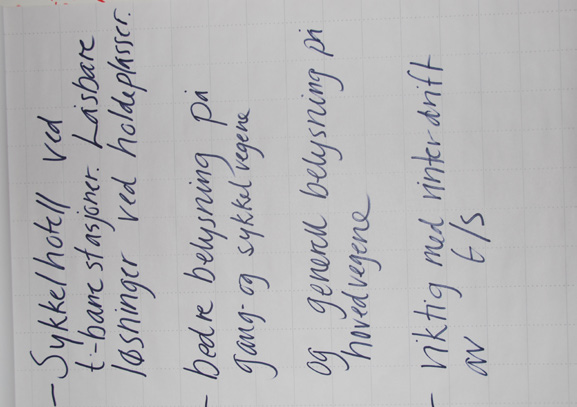 - Sykkelhotell ved
t-bane stasjoner. Låsbare
løsninger ved holdeplasser.
- bedre belysning på
gang- og sykkelvegene
og generell belysning på
hovedvegene
- viktig med vinterdrift
av G/S